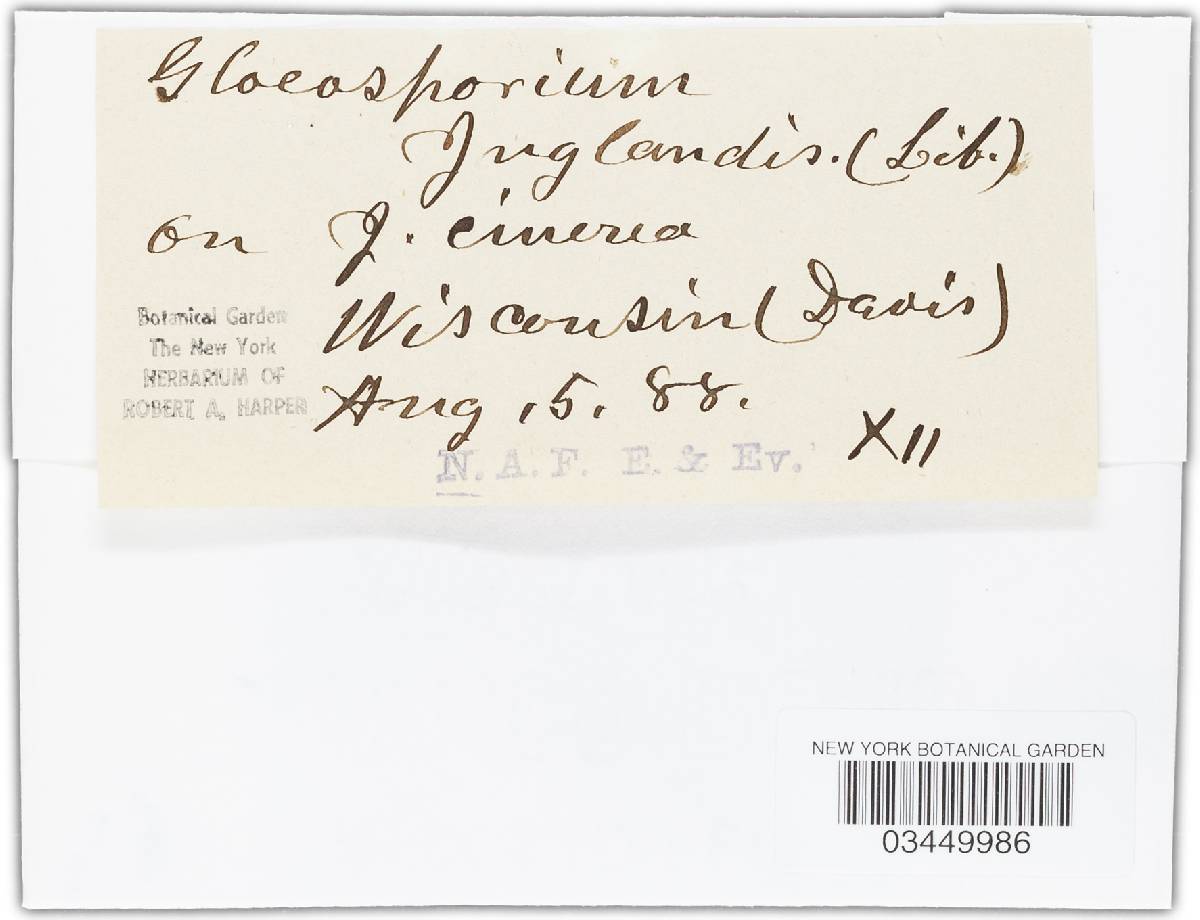 Gloeosporium
Juglandis. (Lib.)
on J. cinerea
Wisconsin (Davis)
Aug 15. 88.
XII
Botanical Garden
The New York
HERBARIUM OF
ROBERT A. HARPER
N. A. F. E. & Ev.
NEW YORK BOTANICAL GARDEN
03449986